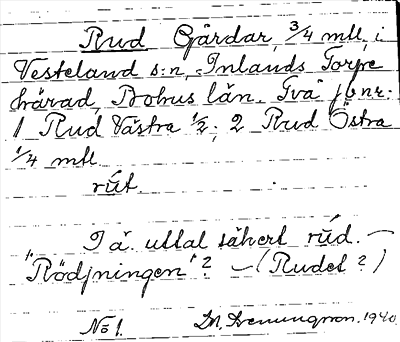 Rud Gårdar, 3/4 mtl, i
Vesteland s:n, Inlands Torpe
härad, Bohus län. Två jbnr:
1 Rud Västra 1/2; 2 Rud Östra
1/4 mtl.
rút.
I ä. uttal säkert rúd. —
"Rödjningen"? — (Rudet?)
No 1. 1940.